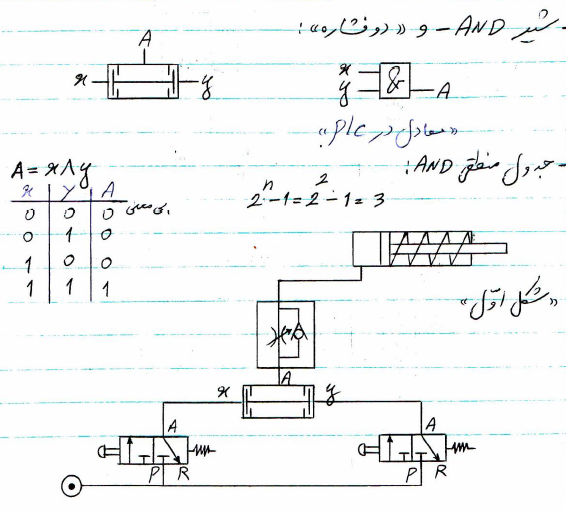 شیر AND - و «دوفشاره»:
A
x y
x
y & A
«معادل در PLC»
جدول منطقی AND:
A = x ∧ y
x y A
0 0 0
0 1 0
1 0 0
1 1 1
2ⁿ-1 = 2²-1 = 3
«شکل اوّل»
A
x y
A A
P R P R